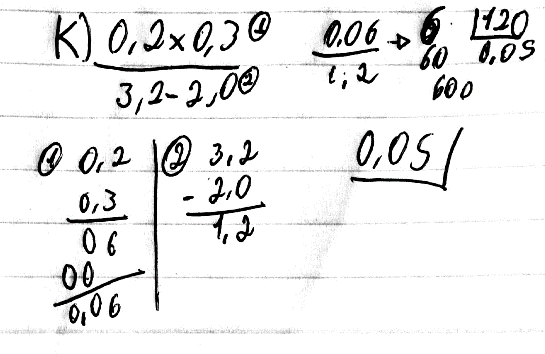 K) 0,2 x 0,3 ①
3,2 - 2,0 ②
0,06
1,2
→ 6 120
60 0,05
600
① 0,2
0,3
06
00
0,06
② 3,2
- 2,0
1,2
0,05